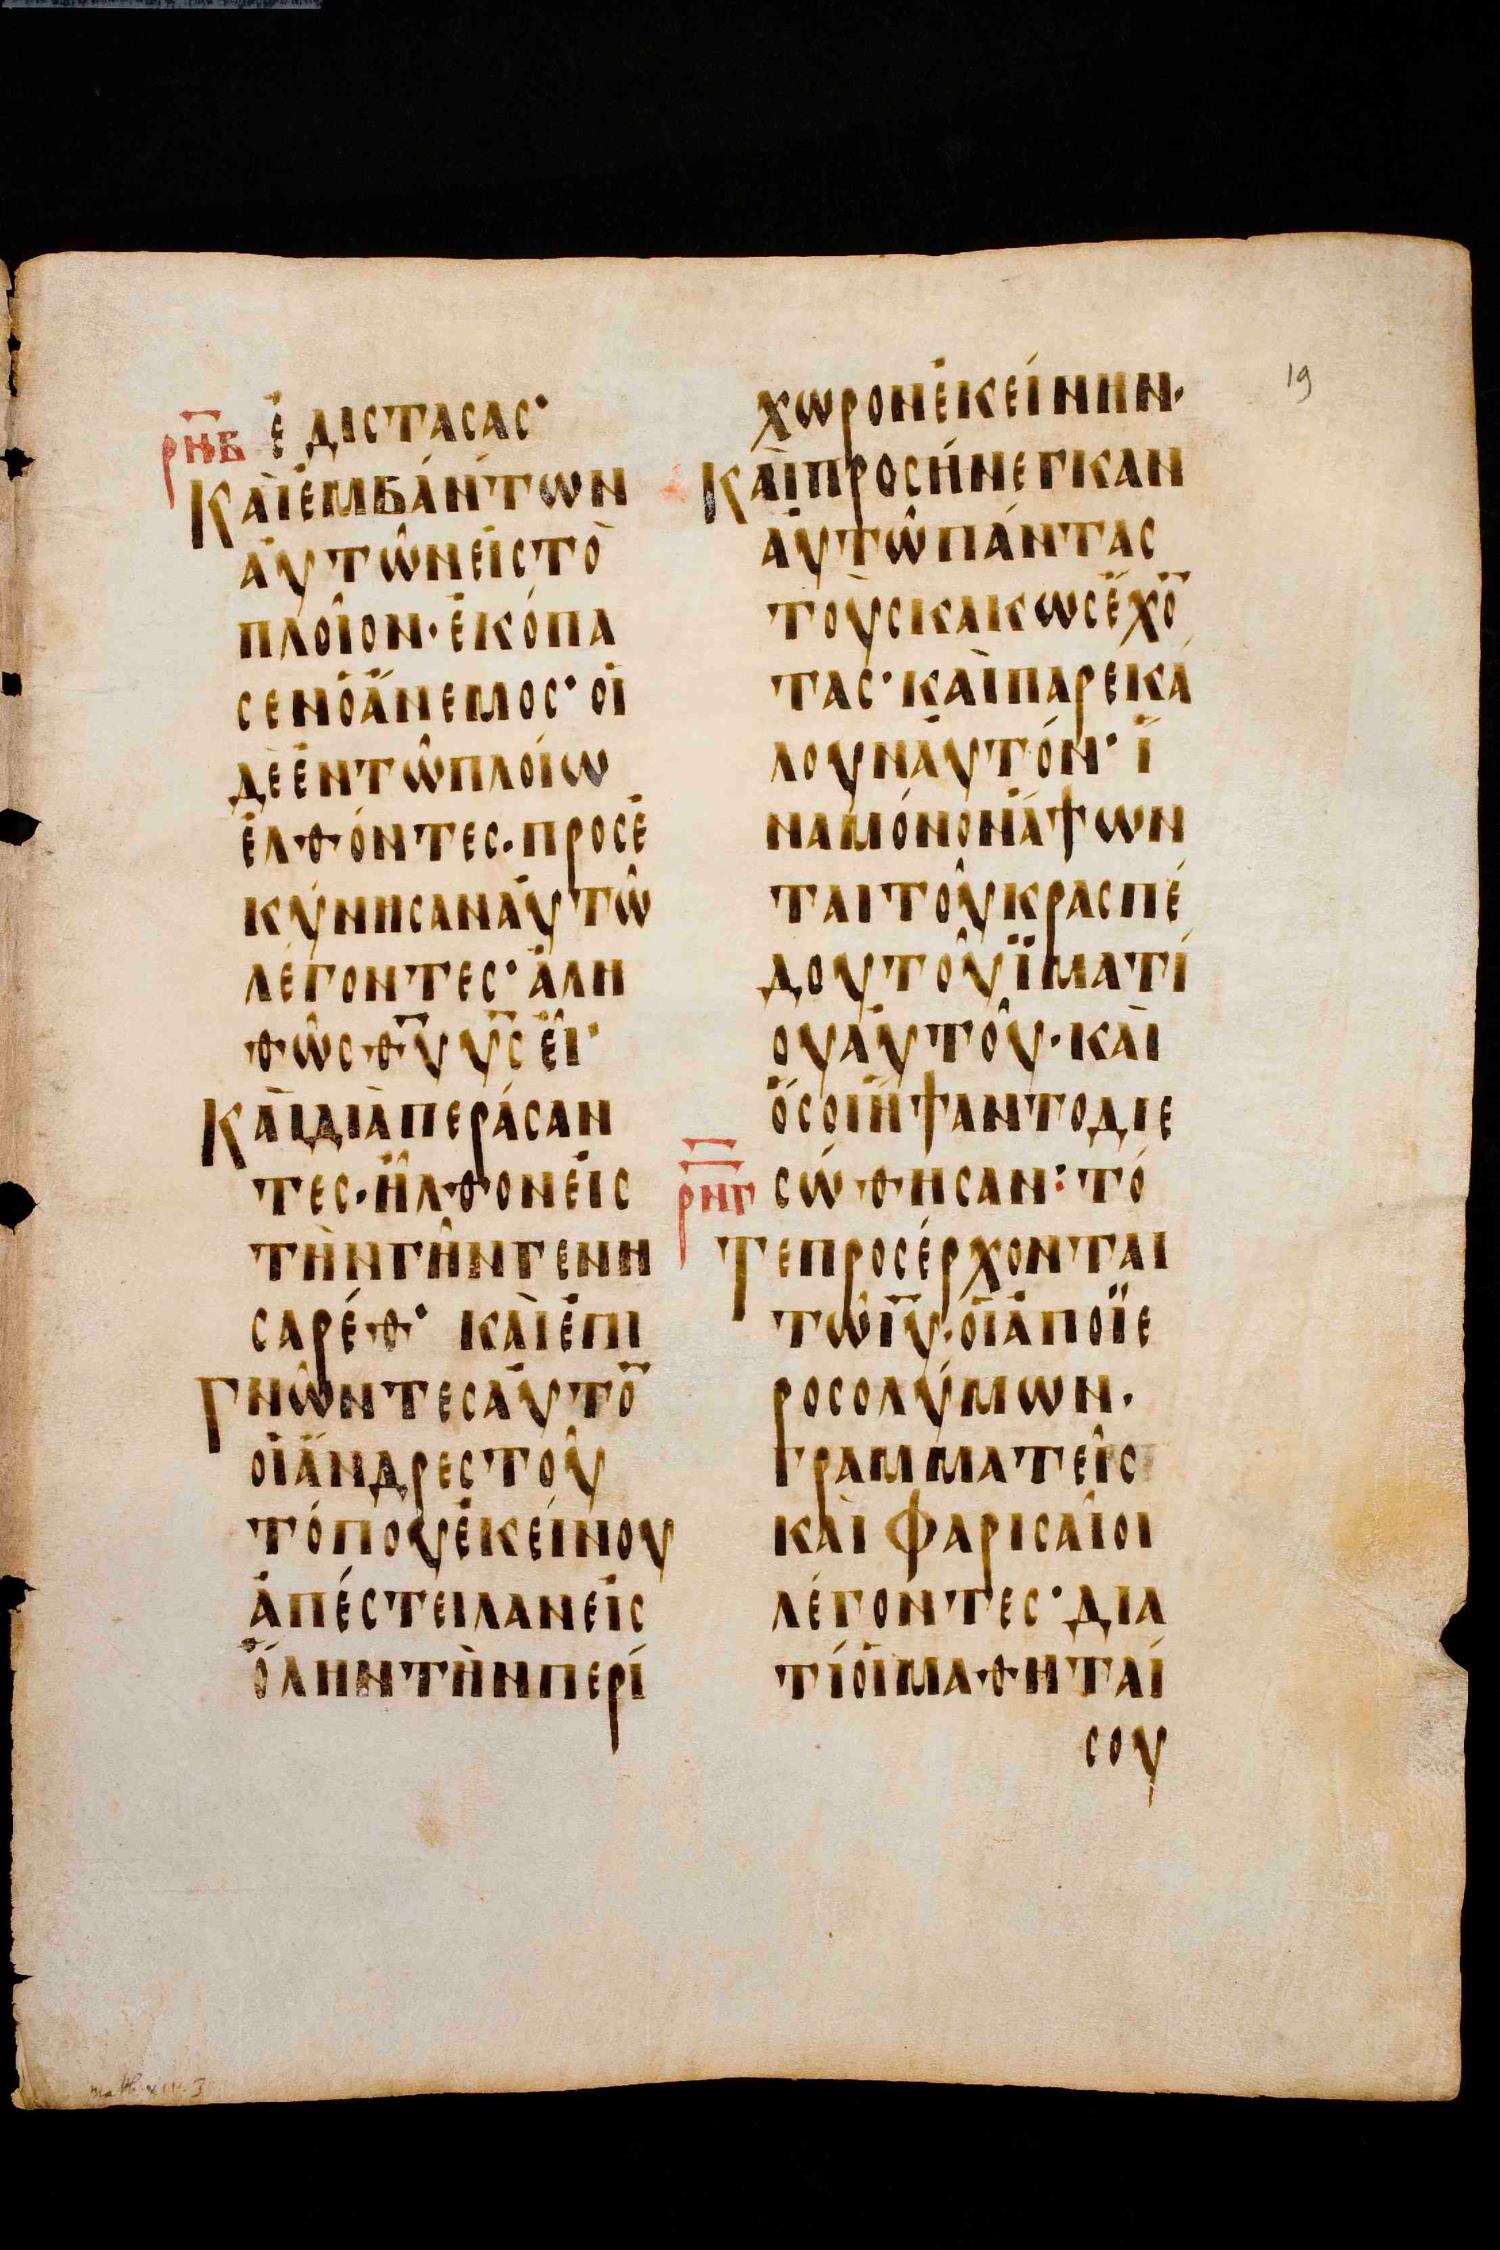 19
ρνβ
ἐδίστασας·
Καὶἐμβάντων
ἀυτῶνεἰςτὸ
πλοῖον·ἐκόπα
σενὁἄνεμος·οἱ
δὲἐντῶπλοίω
ἐλθόντες·προσε
κύνησανἀυτῶ
λέγοντες·ἀλη
θῶςθυυςεἶ·
Καὶδιὰπεράσαν
τες·ἦλθονεἰς
τὴνγῆνγεννη
σαρέθ· καὶἐπι
Γνῶντεςἀυτο̅
οἱἄνδρεςτοῦ
τόπουἐκείνου
ἀπέστειλανεἰς
ὅληντὴνπερί
χωρονἐκείνην·
Καὶπροσήνεγκαν
ἀυτῶπάντας
τοὺςκακωςἔχο̅
τας·καὶπαρεκά
λουνἀυτόν·ἵ
ναμόνονἅψων
ταιτοῦκρασπέ
δουτοῦἱματί
ουἀυτοῦ·καὶ
ὅσοιἥψαντοδιε
ρνγ
σώθησαν:τό
Τεπροσέρχονται
τῶιυ·οἱἀποϊε
ροσολύμων·
γραμματεῖς
καὶφαρισαῖοι
λέγοντες·δια
τίοἱμαθηταί
σου